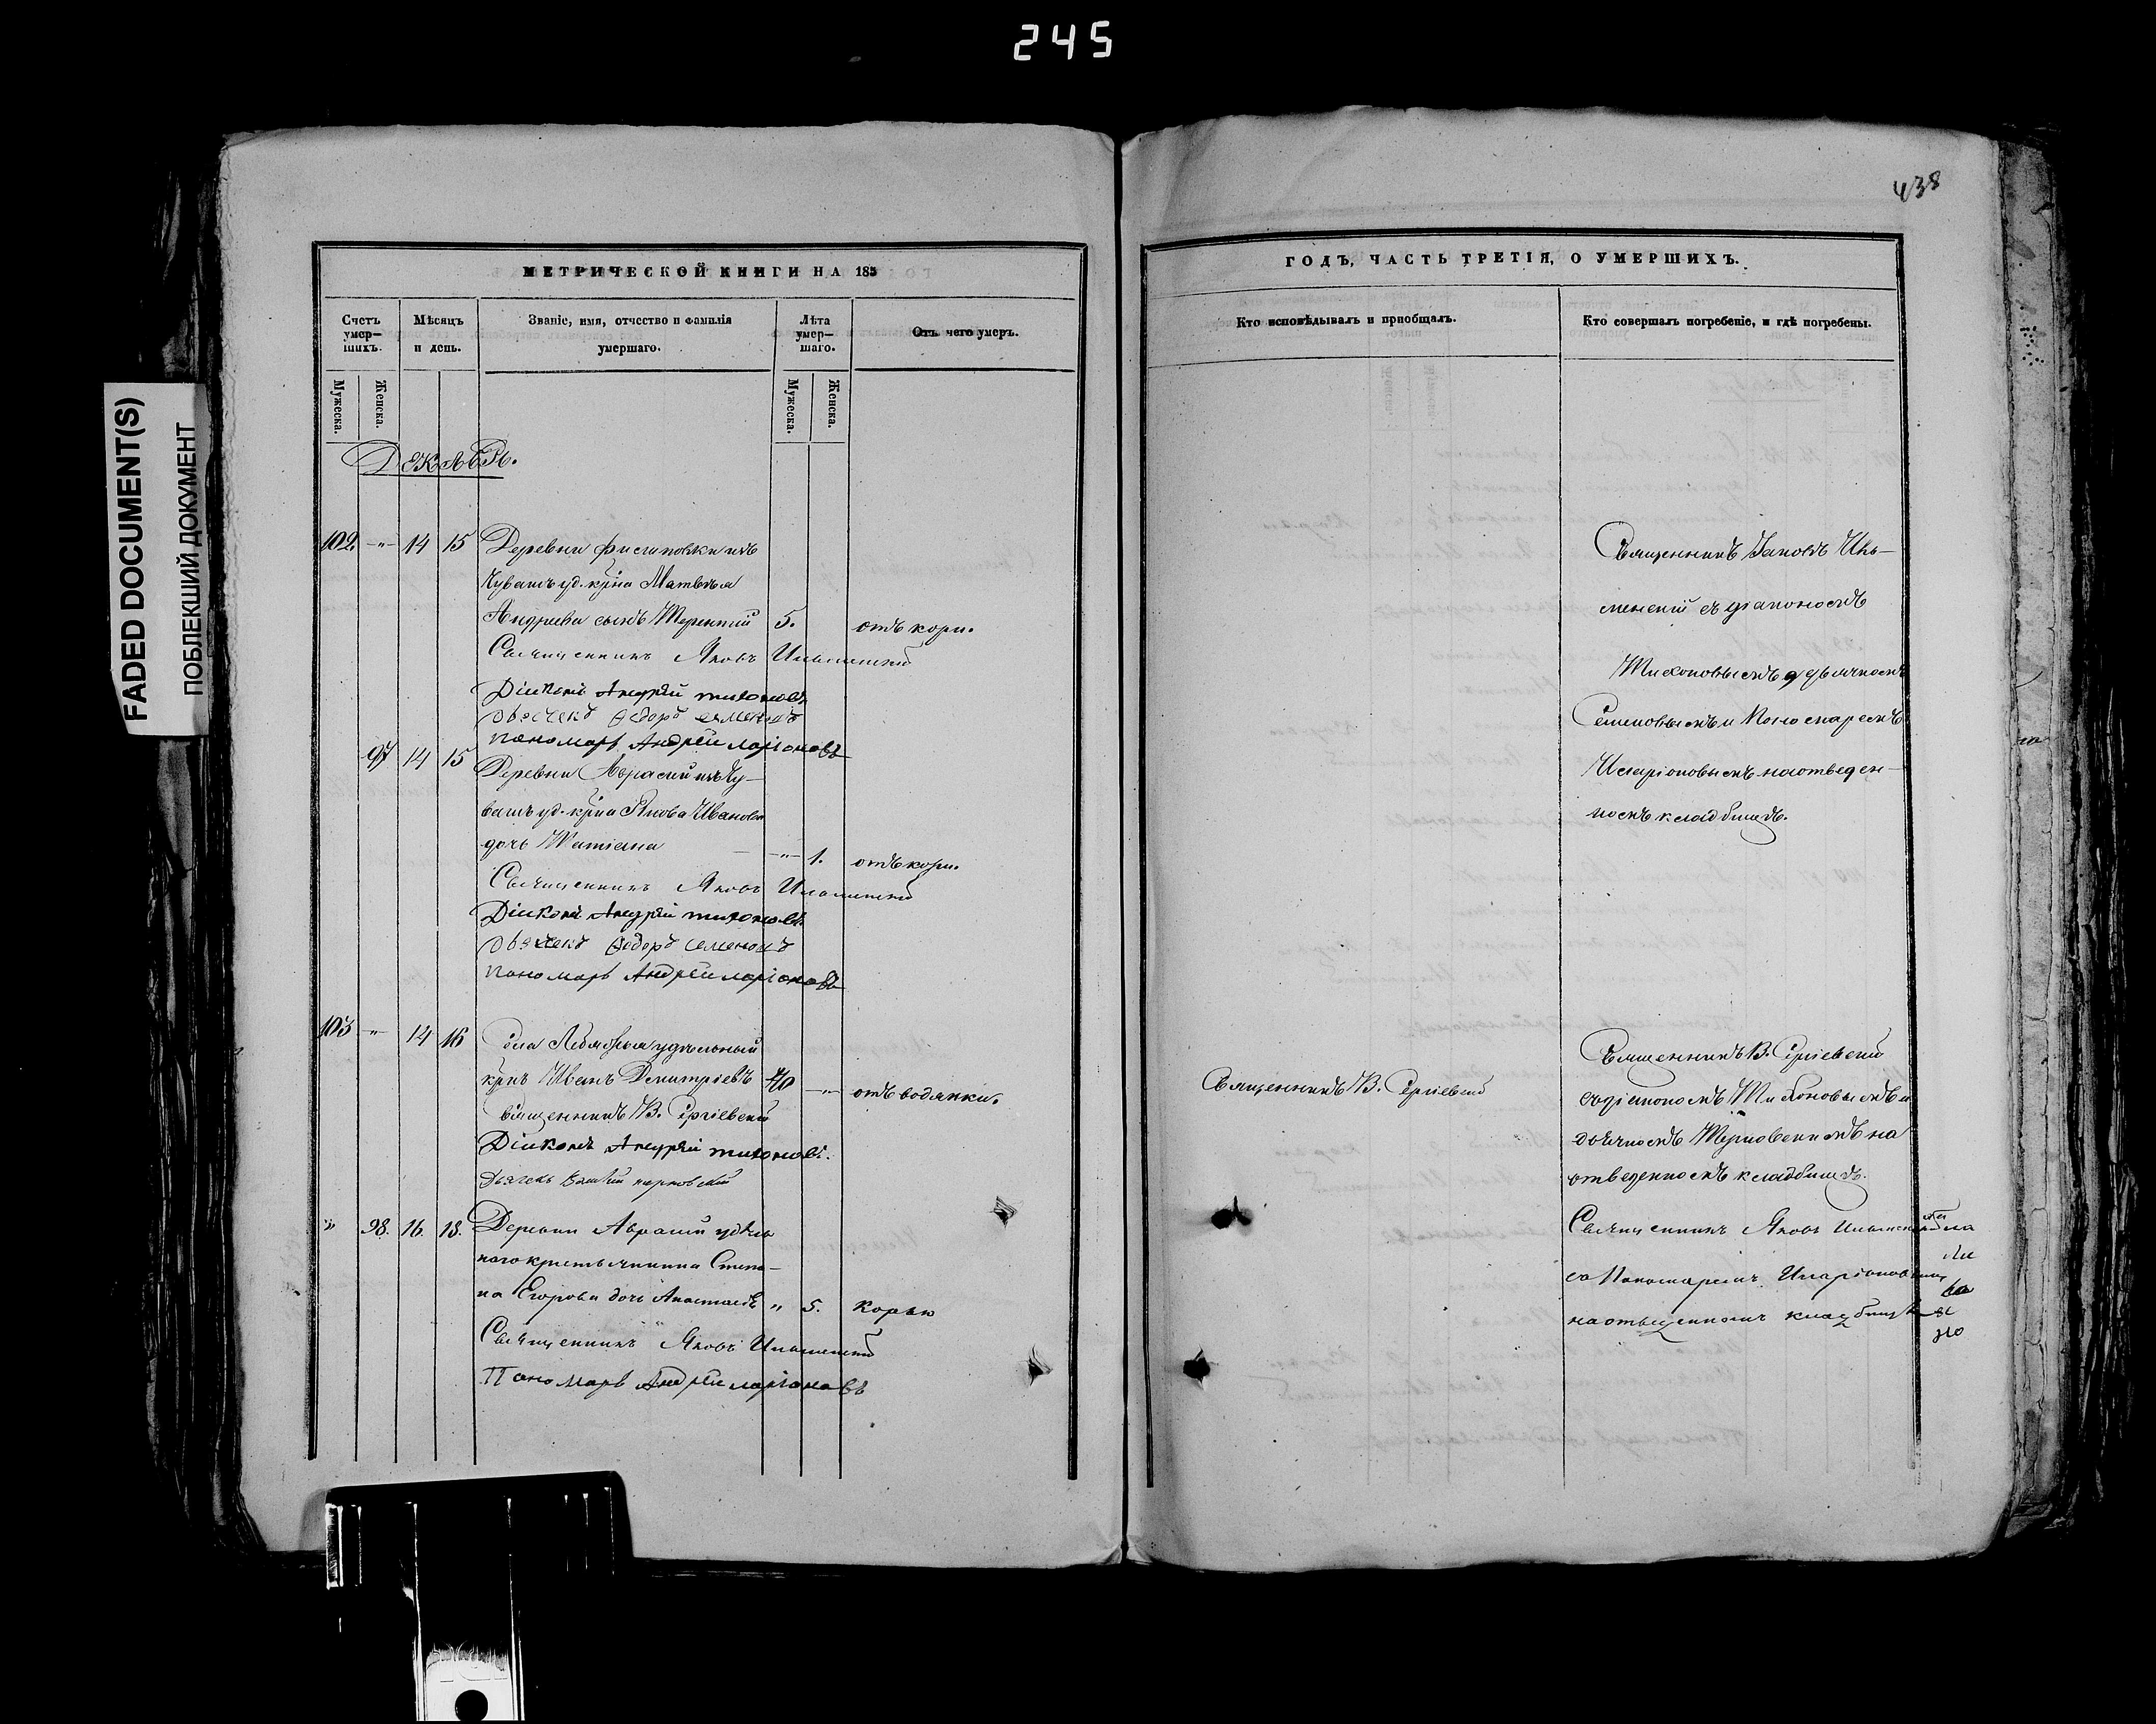 245
FADED DOCUMENT(S)
ПОБЛЕКШИЙ ДОКУМЕНТ
МЕТРИЧЕСКОЙ КНИГИ НА 185
Счетъ умер-шихъ.
Мужеска.
Женска.
Мѣсяцъ и день.
Званіе, имя, отчество и фамилія умершаго.
Лѣта умер-шаго.
Мужеска.
Женска.
Отъ чего умеръ.
Декабрь.
102. -"- 14 15 Деревни изъ
Чувашъ уд. крна Матвѣя
Андреева сынъ Терентий 5. отъ кори.
Священникъ Яковъ Ильменский
Діиконъ Андрѣй тихоновъ
дьячекъ Ѳедоръ семеновъ
пономарь Андрей ларіоновъ
97 14 15 Деревни Авралий изъ Чу-
вашъ уд. крна Якова Иванова
дочь Татіана -"- 1. отъ кори.
Священникъ Яковъ Ильменский
Діиконъ Андрѣй тихоновъ
дьячекъ Ѳедоръ семеновъ
пономарь Андрей ларіоновъ
103 -"- 14 16 Села удѣльный
крнъ Иванъ Димитріевъ 40 -"- отъ водянки.
Священникъ В. Сергіевский
Діиконъ Андрѣй тихоновъ.
Дьячекъ
" 98. 16. 18. Деревни Авралий удѣль
наго крестьянина Степа-
на Егорова дочь Анастасія " 5. Корью
Священникъ Яковъ Ильменский
Пономарь Андрей ларіоновъ
438
ГОДЪ, ЧАСТЬ ТРЕТІЯ, О УМЕРШИХЪ.
Кто исповѣдывалъ и пріобщалъ.
Кто совершалъ погребеніе, и гдѣ погребены.
Священникъ Іаковъ Иль-
менский съ діакономъ
Тихоновымъ дьячкомъ
Семеновымъ и Пономаремъ
Иларіоновымъ на отведен-
номъ кладбищѣ.
Священникъ В. Сергіевский
Священникъ В. Сергіевский
съ діакономъ Тихоновымъ и
дьячкомъ на
отведенномъ кладбищѣ.
Священникъ Яковъ Ильменский
со Пономаремъ Иларіоновымъ
на отведенномъ кладбищѣ